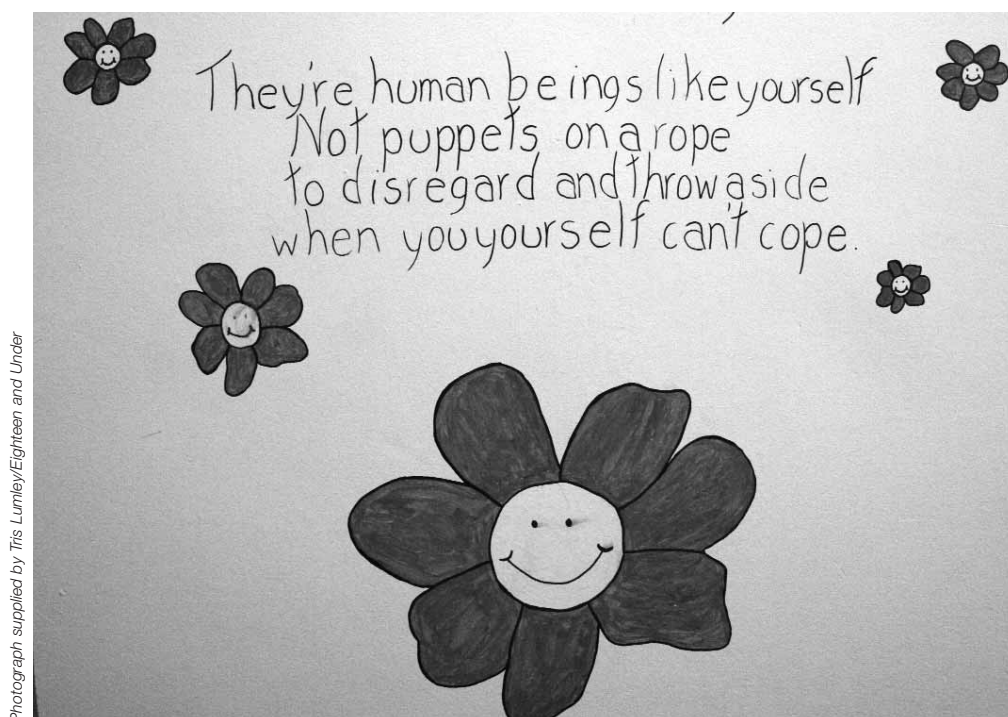 They're human beings like yourself
Not puppets on a rope
to disregard and throw aside
when you yourself can't cope.
Photograph supplied by Tris Lumley/Eighteen and Under